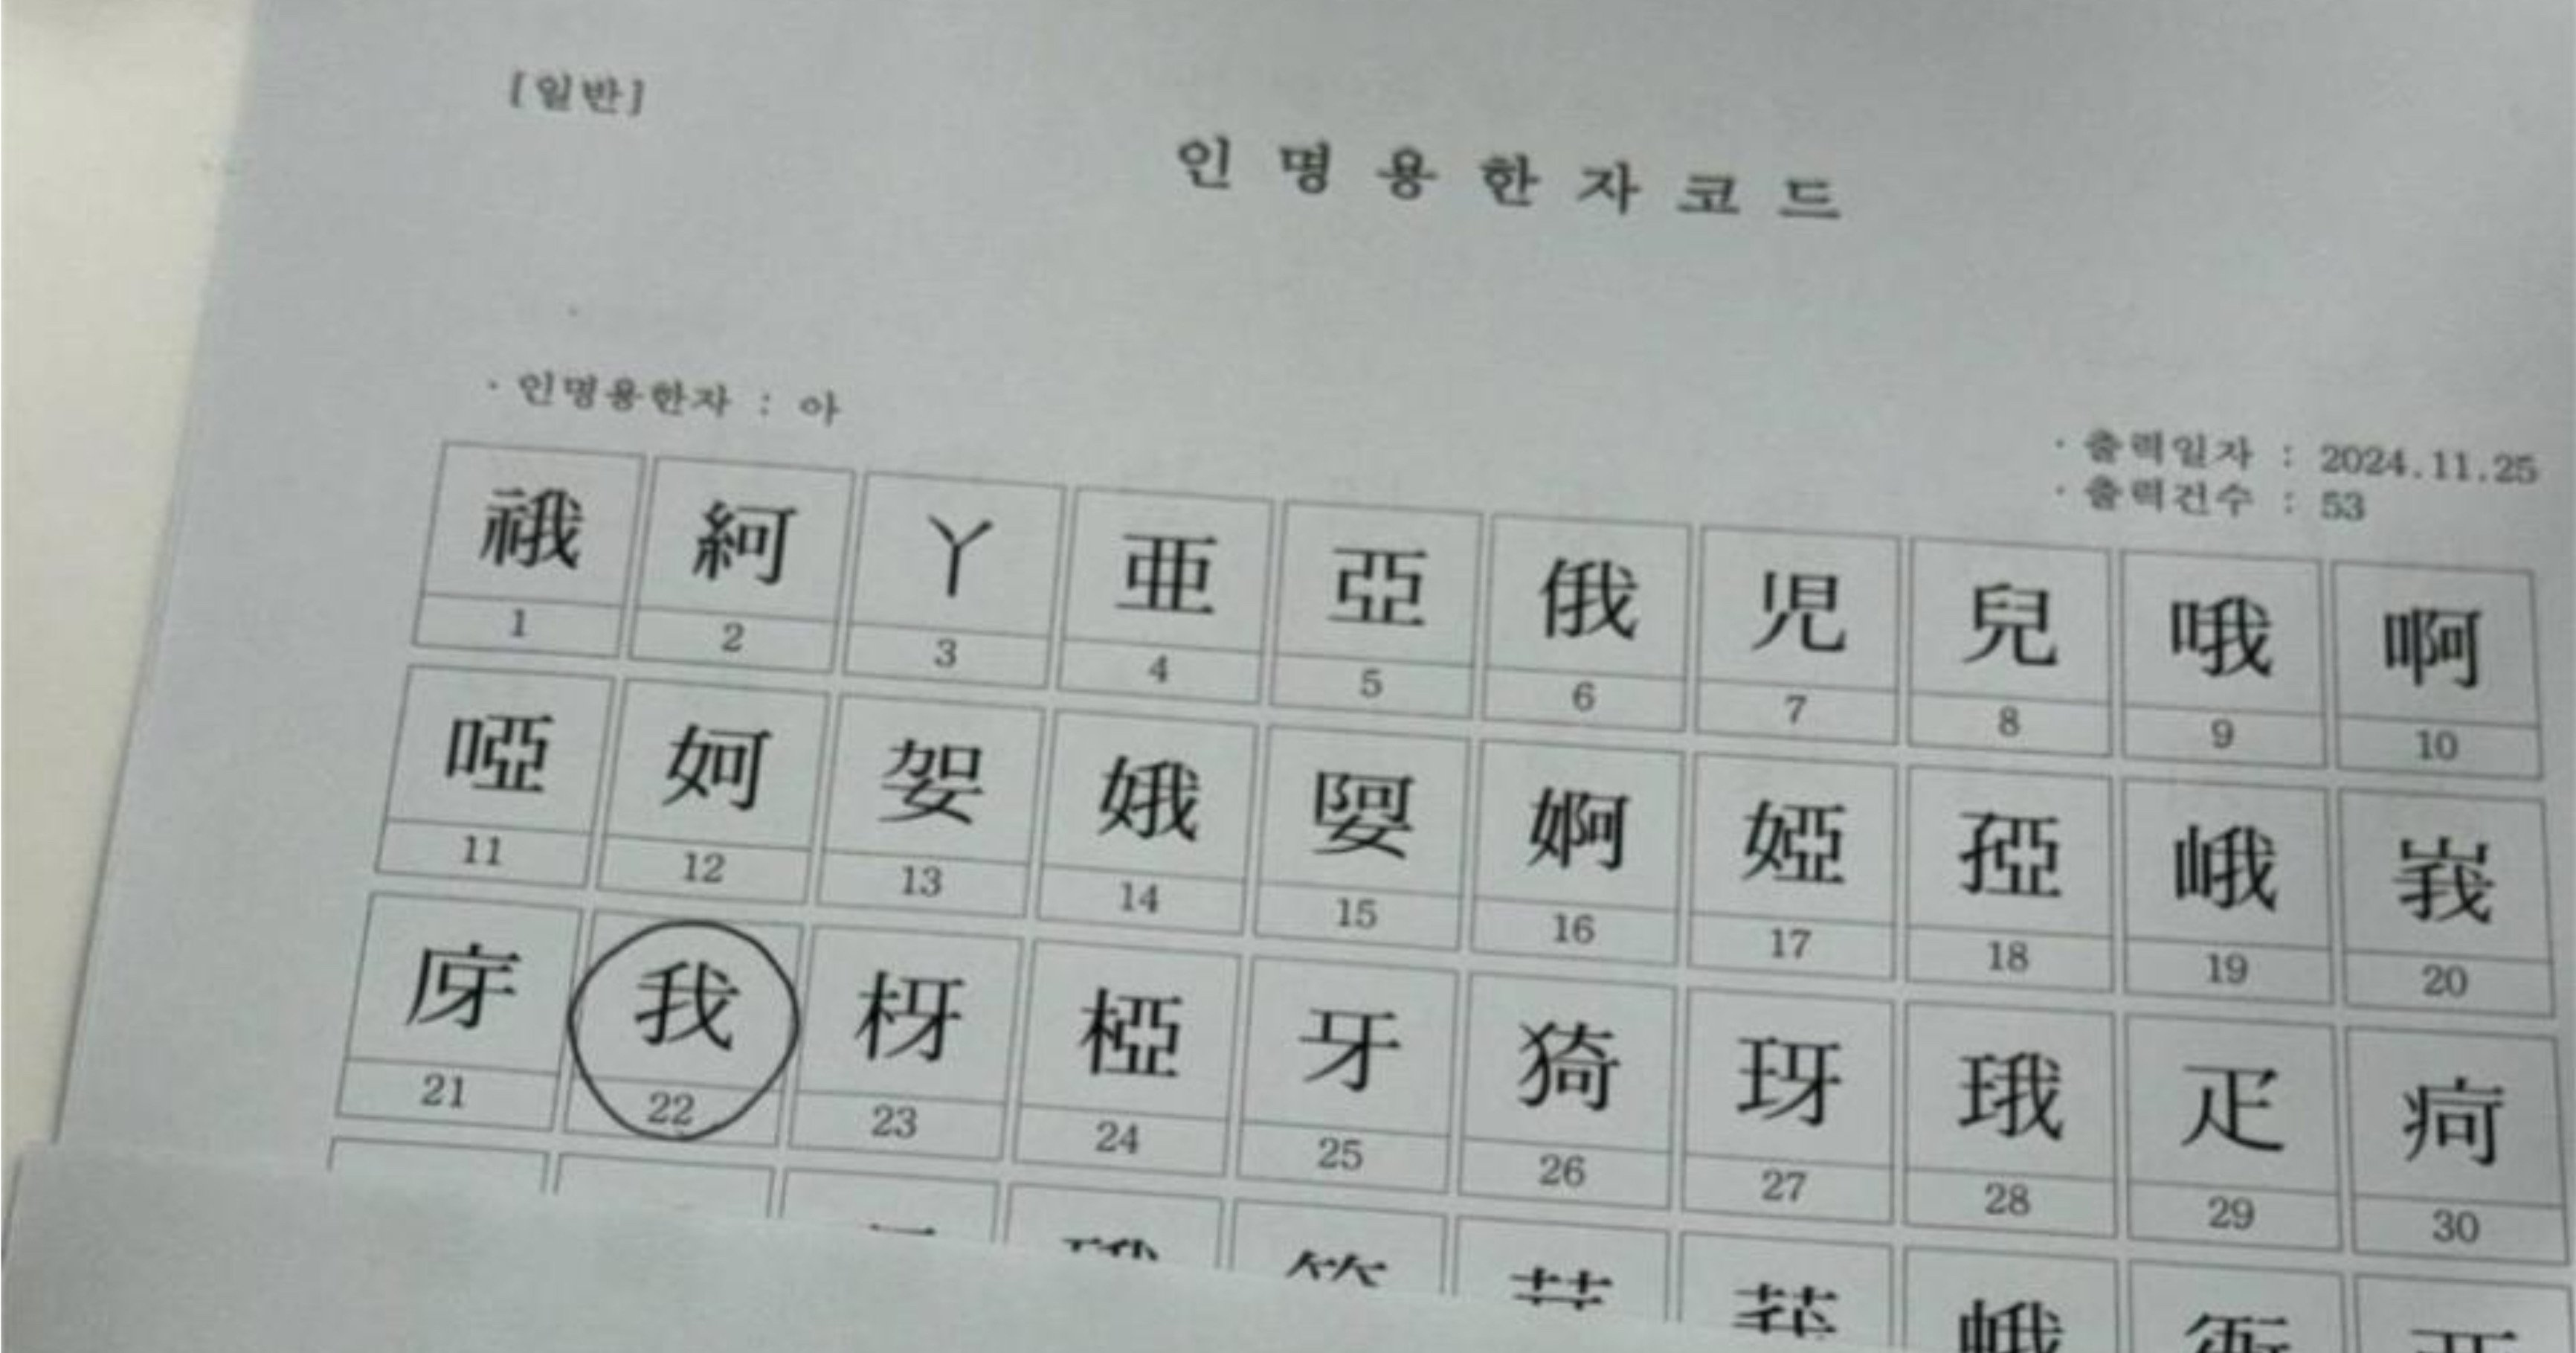 [일반]
인명용한자코드
· 인명용한자 : 아
· 출력일자 : 2024.11.25
· 출력건수 : 53
䄉 紂 丫 亜 亞 俄 児 兒 哦 啊
1 2 3 4 5 6 7 8 9 10
啞 妸 娿 娥 婴 婀 婭 孲 峨 峩
11 12 13 14 15 16 17 18 19 20
庌 我 枒 椏 牙 猗 玡 珴 疋 疴
21 22 23 24 25 26 27 28 29 30